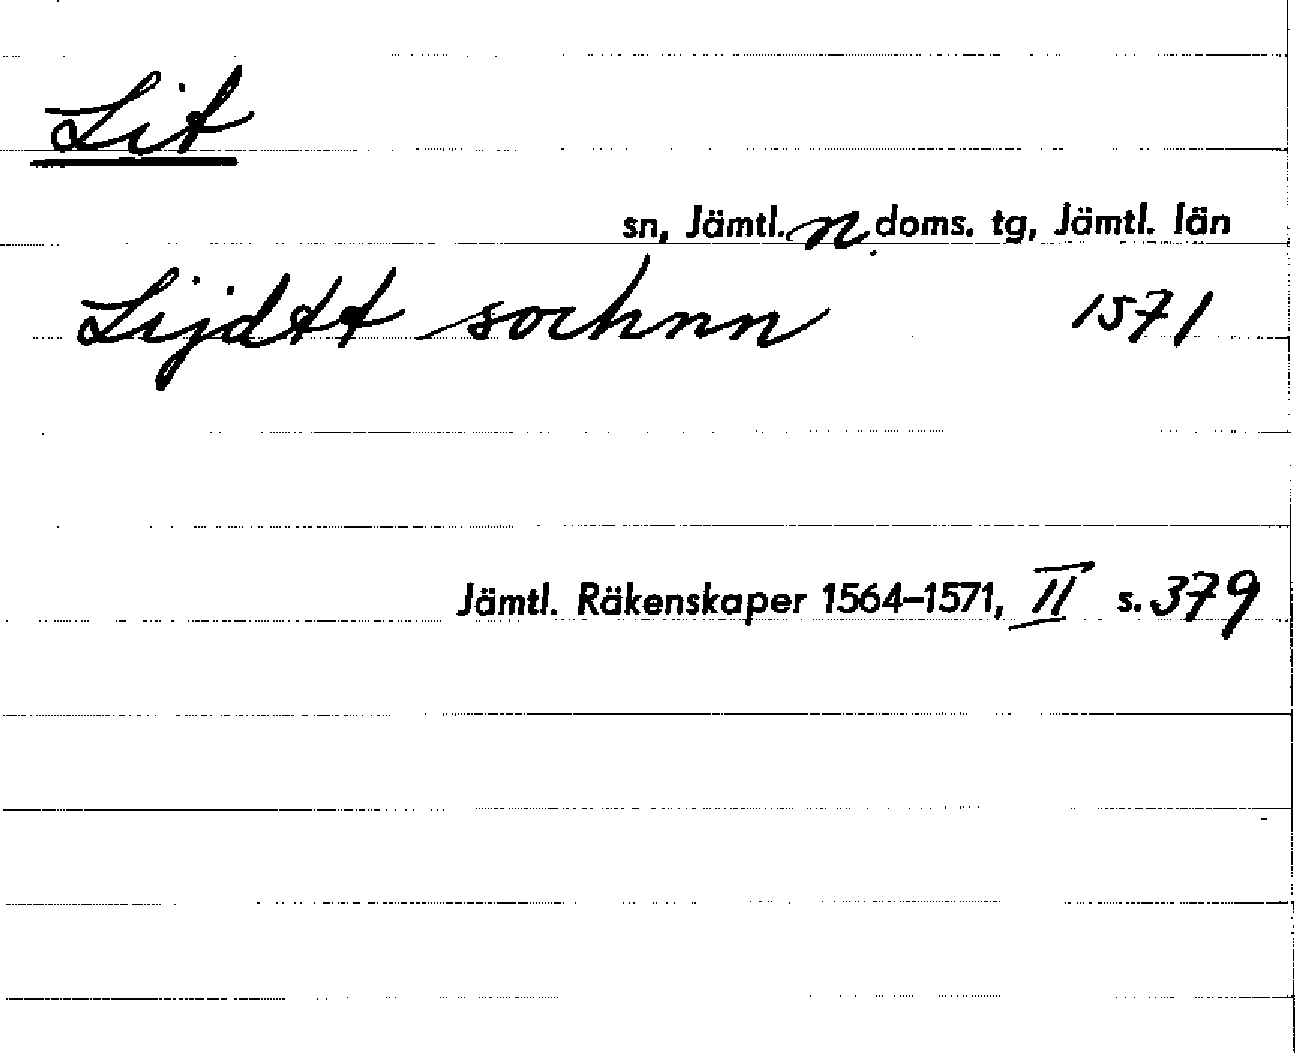 Lit
sn, Jämtl. n. doms. tg, Jämtl. län
Lijdtt sochnn 1571
Jämtl. Räkenskaper 1564–1571, II s. 379